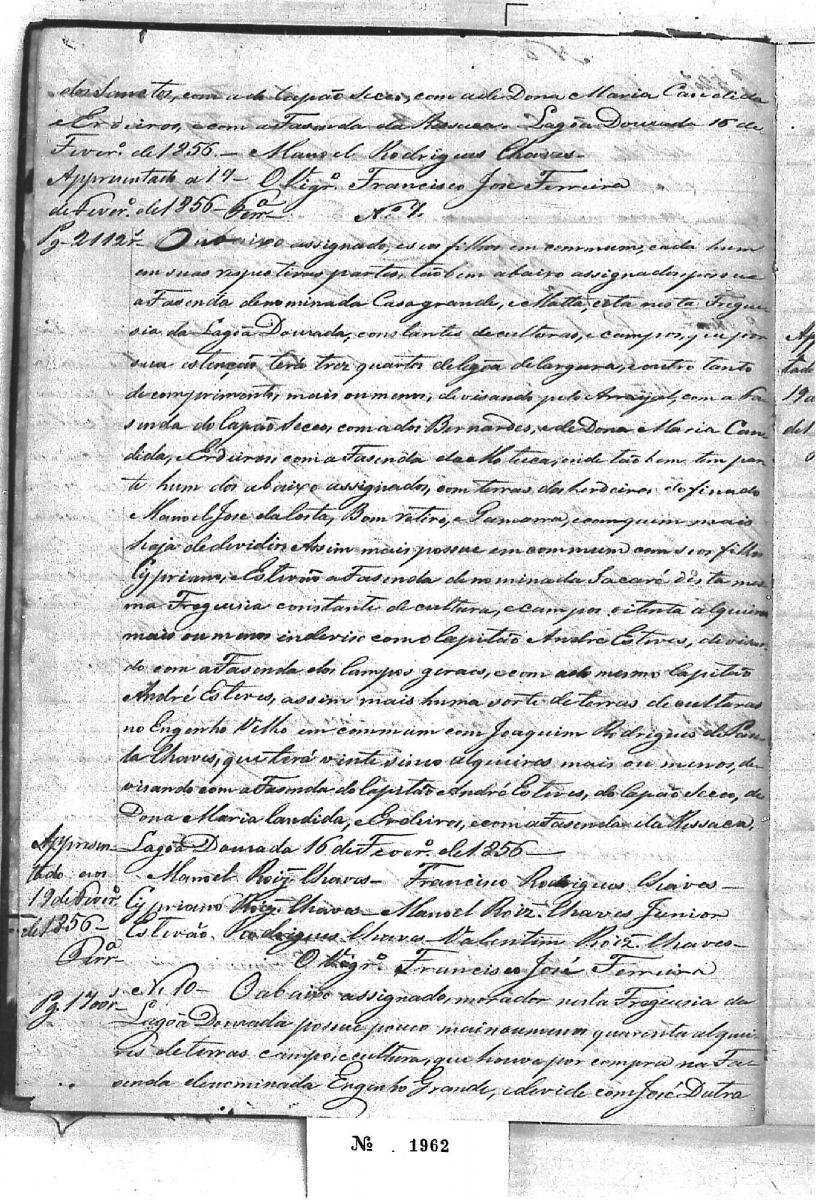 dos Sanctos, com a do Capão Seco, com a de Dona Maria Candida
e Erdeiros, e com a Fasenda da Ressaca. Lagôa Dourada 16 de
Fever.º de 1856. — Manoel Rodrigues Chaves.
Appresentado a 17 — O Vigr.º Francisco José Ferreira
de Fever.º de 1856 — Ferr.ª
N.º 9.
Pg. 2112 r.
O abaixo assignado, e seos filhos em commum, cada hum
em suas respectivas partes, tãobem abaixo assignados, possue
a Fasenda denominada Casagrande, e Matta, cita nesta Fregue
sia da Lagôa Dourada, constantes de culturas, e campos, q̃ em por
sua estenção terá trez quartos de legôa de largura, e outro tanto
de comprimento, mais ou menos, devisando pelo Arraýal, com a Fa
senda do Capão Seco, com a dos Bernardes, e de Dona Maria Can
dida, e Erdeiros, com a Fasenda da Motuca, onde tãobem tem par
te hum dos abaixo assignados, com terras dos herdeiros do finado
Manoel José da Costa, Bom retiro, e Gamarra, e com quem mais
haja de devidir. Assim mais possue em commum com seos filhos
Cypriano, e Estevão a Fasenda denominada Jacaré désta mes
ma Freguesia constante de cultura, e campos oitenta alqueires
mais ou menos indeviso com o Capitão André Esteves, devisan
do com a Fasenda dos Campos gerais, e com a do mesmo Capitão
André Esteves, assim mais huma sorte de terras de culturas
no Engenho Velho em commum com Joaquim Rodrigues de Pau
la Chaves, que terá vinte sinco alqueires mais ou menos, de
visando com a Fasenda do Capitão André Esteves, do Capão Seco, de
Dona Maria Candida, e Erdeiros, e com a Fasenda da Ressaca.
Lagôa Dourada 16 de Fever.º de 1856 —
Appresen
tado em
19 de Fever.º
de 1856 —
Ferr.ª
Manoel Roiz Chaves — Francisco Rodrigues Chaves —
Cypriano Roiz Chaves — Manoel Roiz. Chaves Junior
Estevão Rodrigues Chaves — Valentim Roiz. Chaves —
O Vigr.º Francisco José Ferreira
Pg. 1700 r.
N. 10 — O abaixo assignado, morador nesta Freguesia da
Lagôa Dourada possue pouco mais ou menos quarenta alquei
res de terras. campo, e cultura, que houve por compra na Fa
senda denominada Engenho Grande, e devide com José Dutra
Nº . 1962